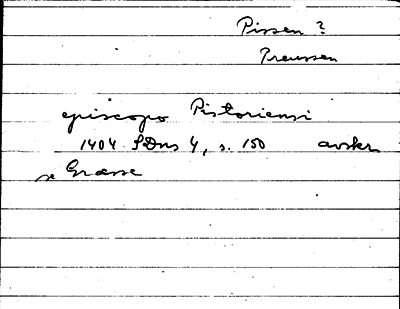 Pissen ?
Preussen
episcopo Pistoriensi
1404 SDns 4, s. 150 avskr
se Graesse